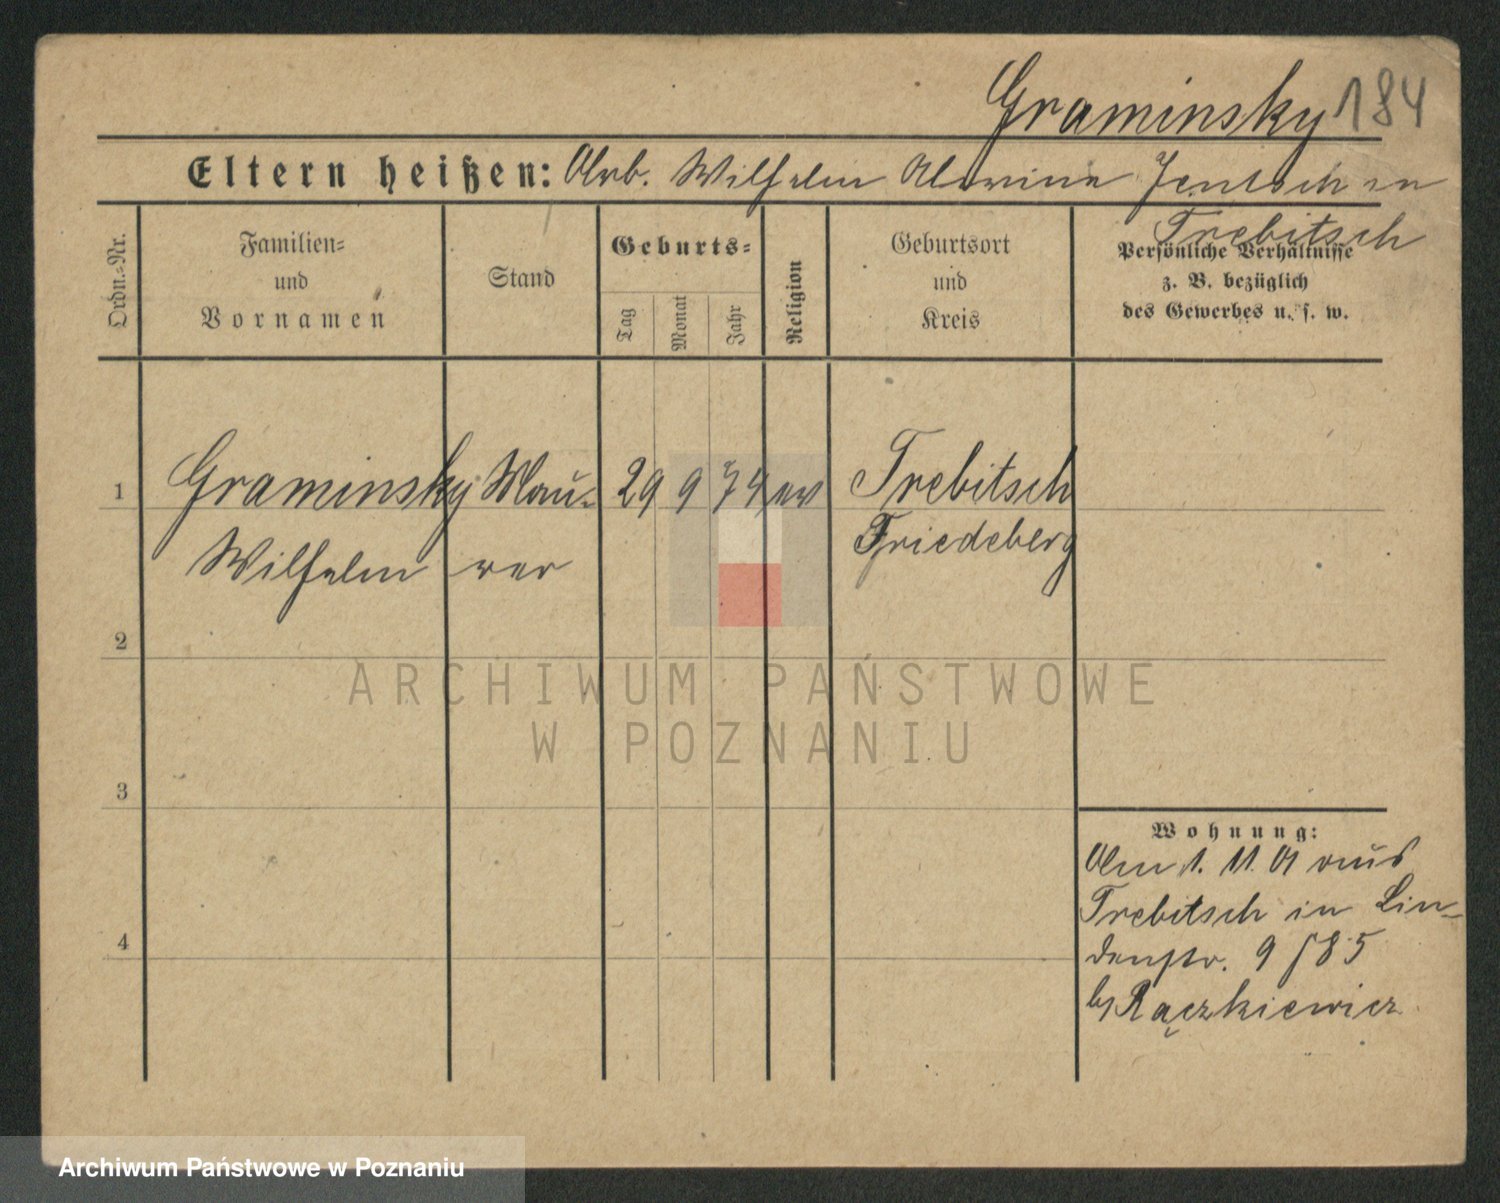 Graminsky 184
Eltern heißen: Arb. Wilhelm Jentsch in
Trebitsch
Ordn.-Nr.
Familien-
und
Vornamen
Stand
Geburts-
Tag
Monat
Jahr
Religion
Geburtsort
und
Kreis
Persönliche Verhältnisse
z. B. bezüglich
des Gewerbes u. s. w.
1 Graminsky Mau- 29 9 74 ev Trebitsch
Wilhelm rer Friedeberg
2
3
4
Wohnung:
Am 1. 11. 01 aus
Trebitsch in Lin-
denstr. 9 / 85
b/ Rączkiewicz
ARCHIWUM PAŃSTWOWE
W POZNANIU
Archiwum Państwowe w Poznaniu